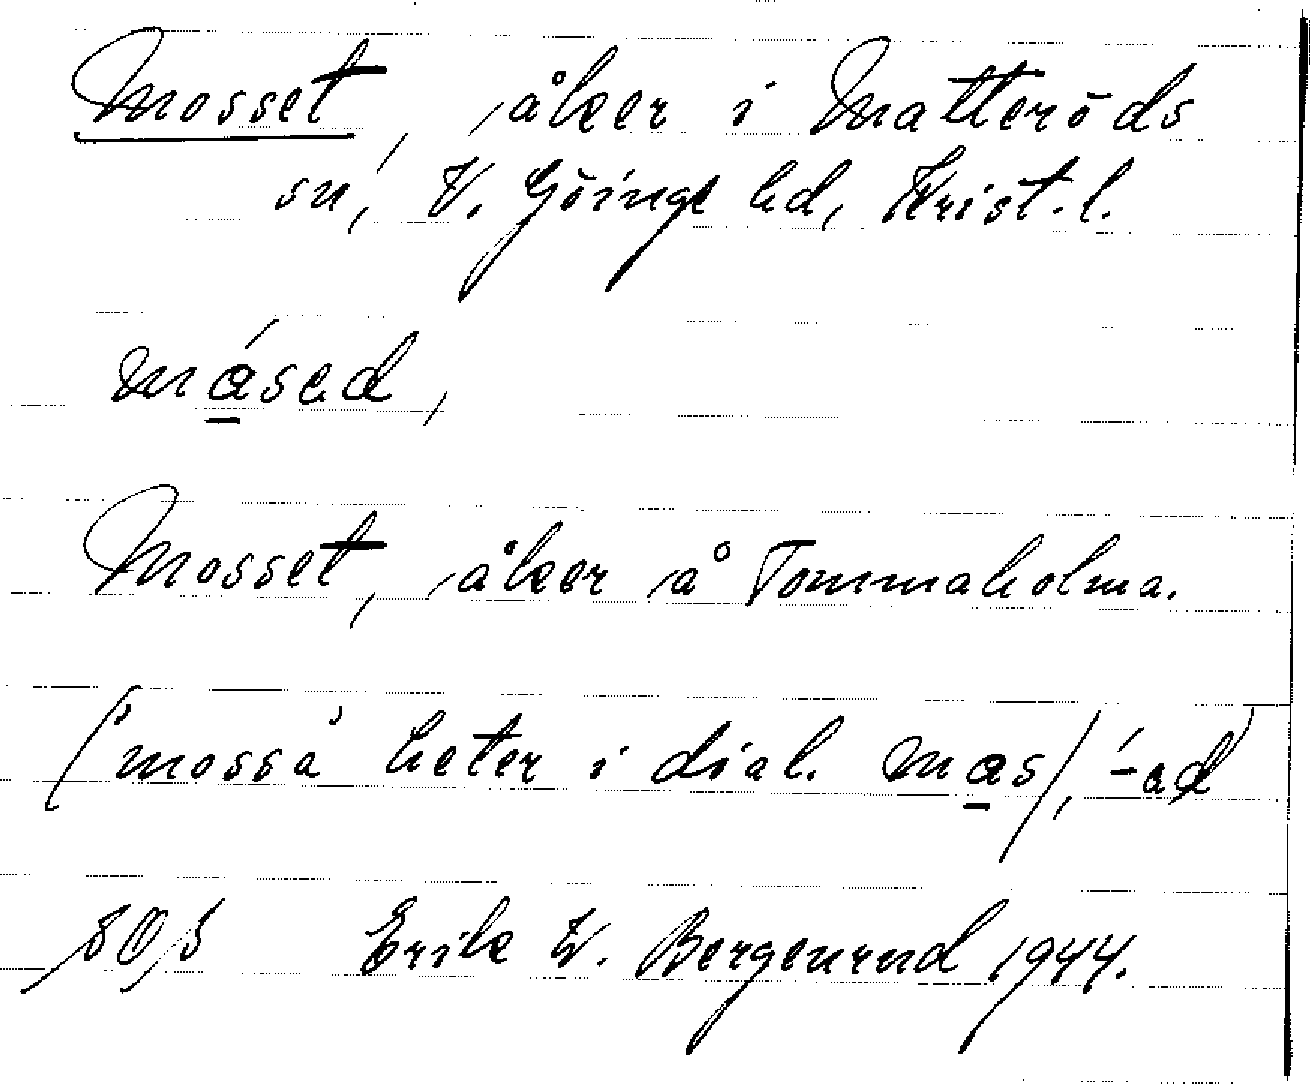 Mosset, åker i Matteröds
sn, V. Göinge hd, Krist. l.
másed,
Mosset, åker å Tommaholma.
('mossa' heter i dial. mas/, ́-ad)
Erik W. Bergenrud 1944.